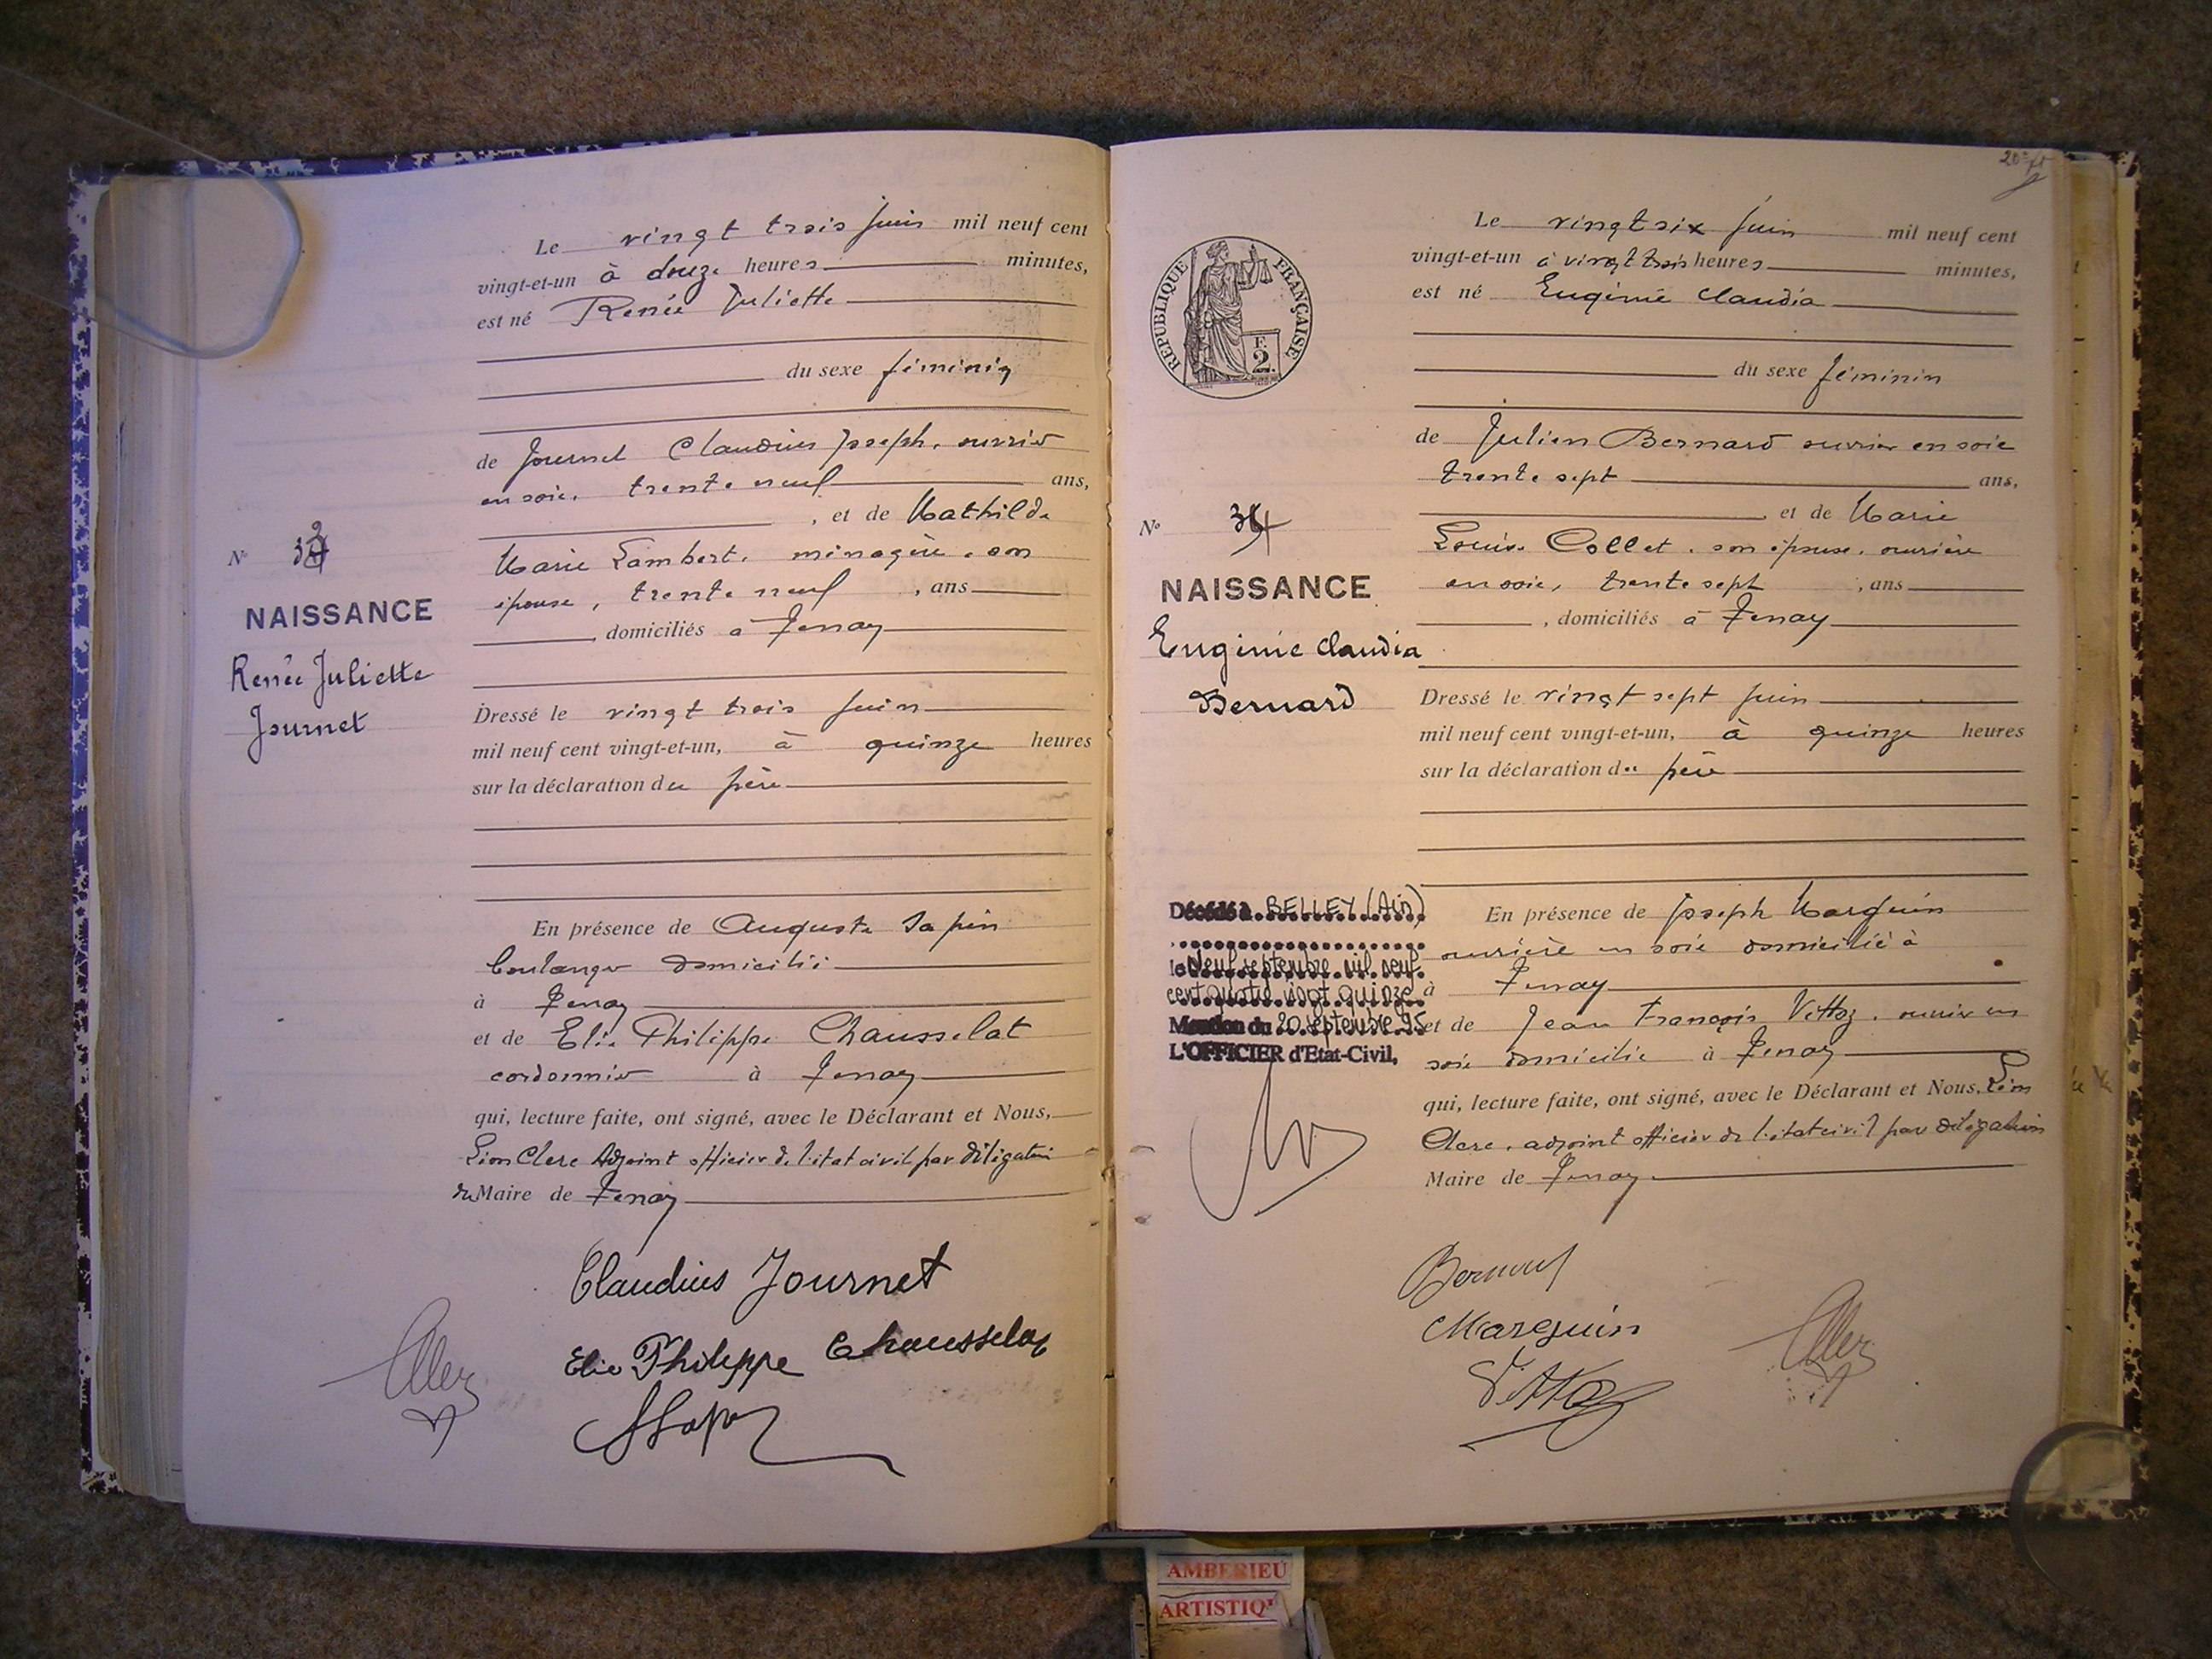 Le vingt trois juin mil neuf cent
vingt-et-un à douze heures minutes,
est né Renée Juliette
du sexe féminin
de Journet Claudius Joseph, ouvrier
en soie, trente neuf ans,
, et de Mathilde
Marie Lambert, ménagère, son
épouse, trente neuf , ans
, domiciliés à Tenay
Nº
NAISSANCE
Renée Juliette
Journet
Dressé le vingt trois juin
mil neuf cent vingt-et-un, à quinze heures
sur la déclaration du père
En présence de Auguste Sapin
boulanger domicilié
à Tenay
et de Elie Philippe Chausselat
cordonnier à Tenay
qui, lecture faite, ont signé, avec le Déclarant et Nous,
Léon Clerc Adjoint officier de l'état civil par délégation
du Maire de Tenay
Claudius Journet
Elie Philippe Chausselat
RÉPUBLIQUE FRANÇAISE
F.
2.
Le vingt six juin mil neuf cent
vingt-et-un à vingt trois heures minutes,
est né Eugénie Claudia
du sexe féminin
de Julien Bernard ouvrier en soie
trente sept ans,
, et de Marie
Louise Collet, son épouse, ouvrière
en soie, trente sept , ans
, domiciliés à Tenay
Nº 34
NAISSANCE
Eugénie Claudia
Bernard
Dressé le vingt sept juin
mil neuf cent vingt-et-un, à quinze heures
sur la déclaration du père
En présence de Joseph Marquin
ouvrière en soie domicilié à
à Tenay
et de Jean François Vittoz, ouvrier en
soie domicilié à Tenay
qui, lecture faite, ont signé, avec le Déclarant et Nous, Léon
Clerc, adjoint officier de l'état civil par délégation
Maire de Tenay
Décédé à BELLEY (Ain)
le neuf septembre mil neuf
cent quatre vingt quinze
Mention du 20 septembre 95
L'OFFICIER d'Etat-Civil,
Bernard
Marquin
Vittoz
AMBERIEU
ARTISTIQ